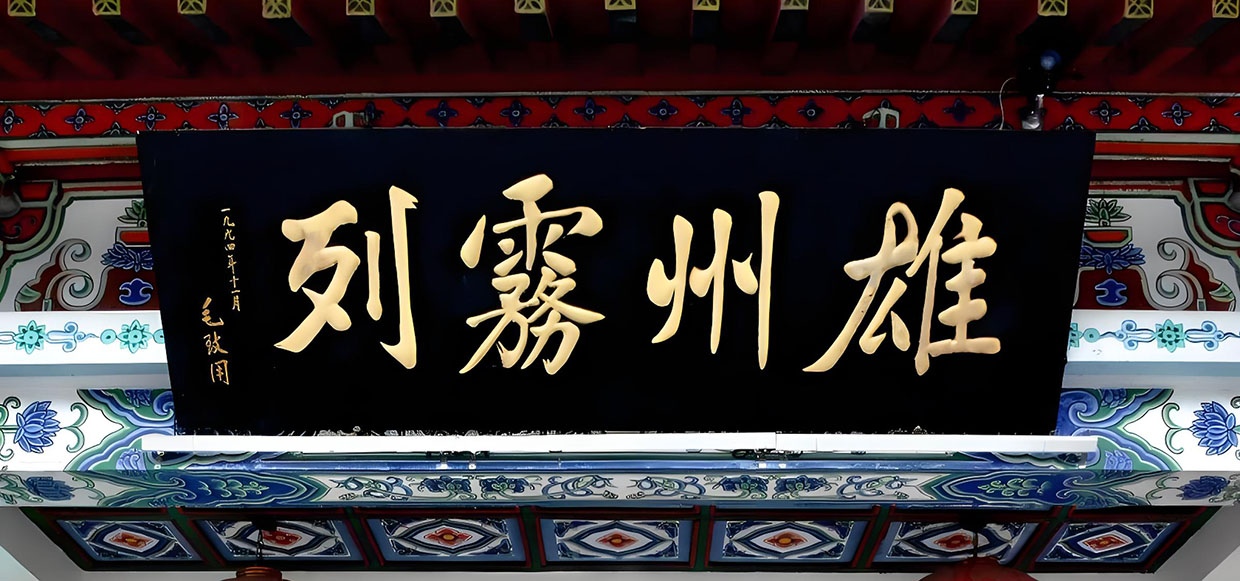 雄州霧列
一九九四年十一月
毛致用